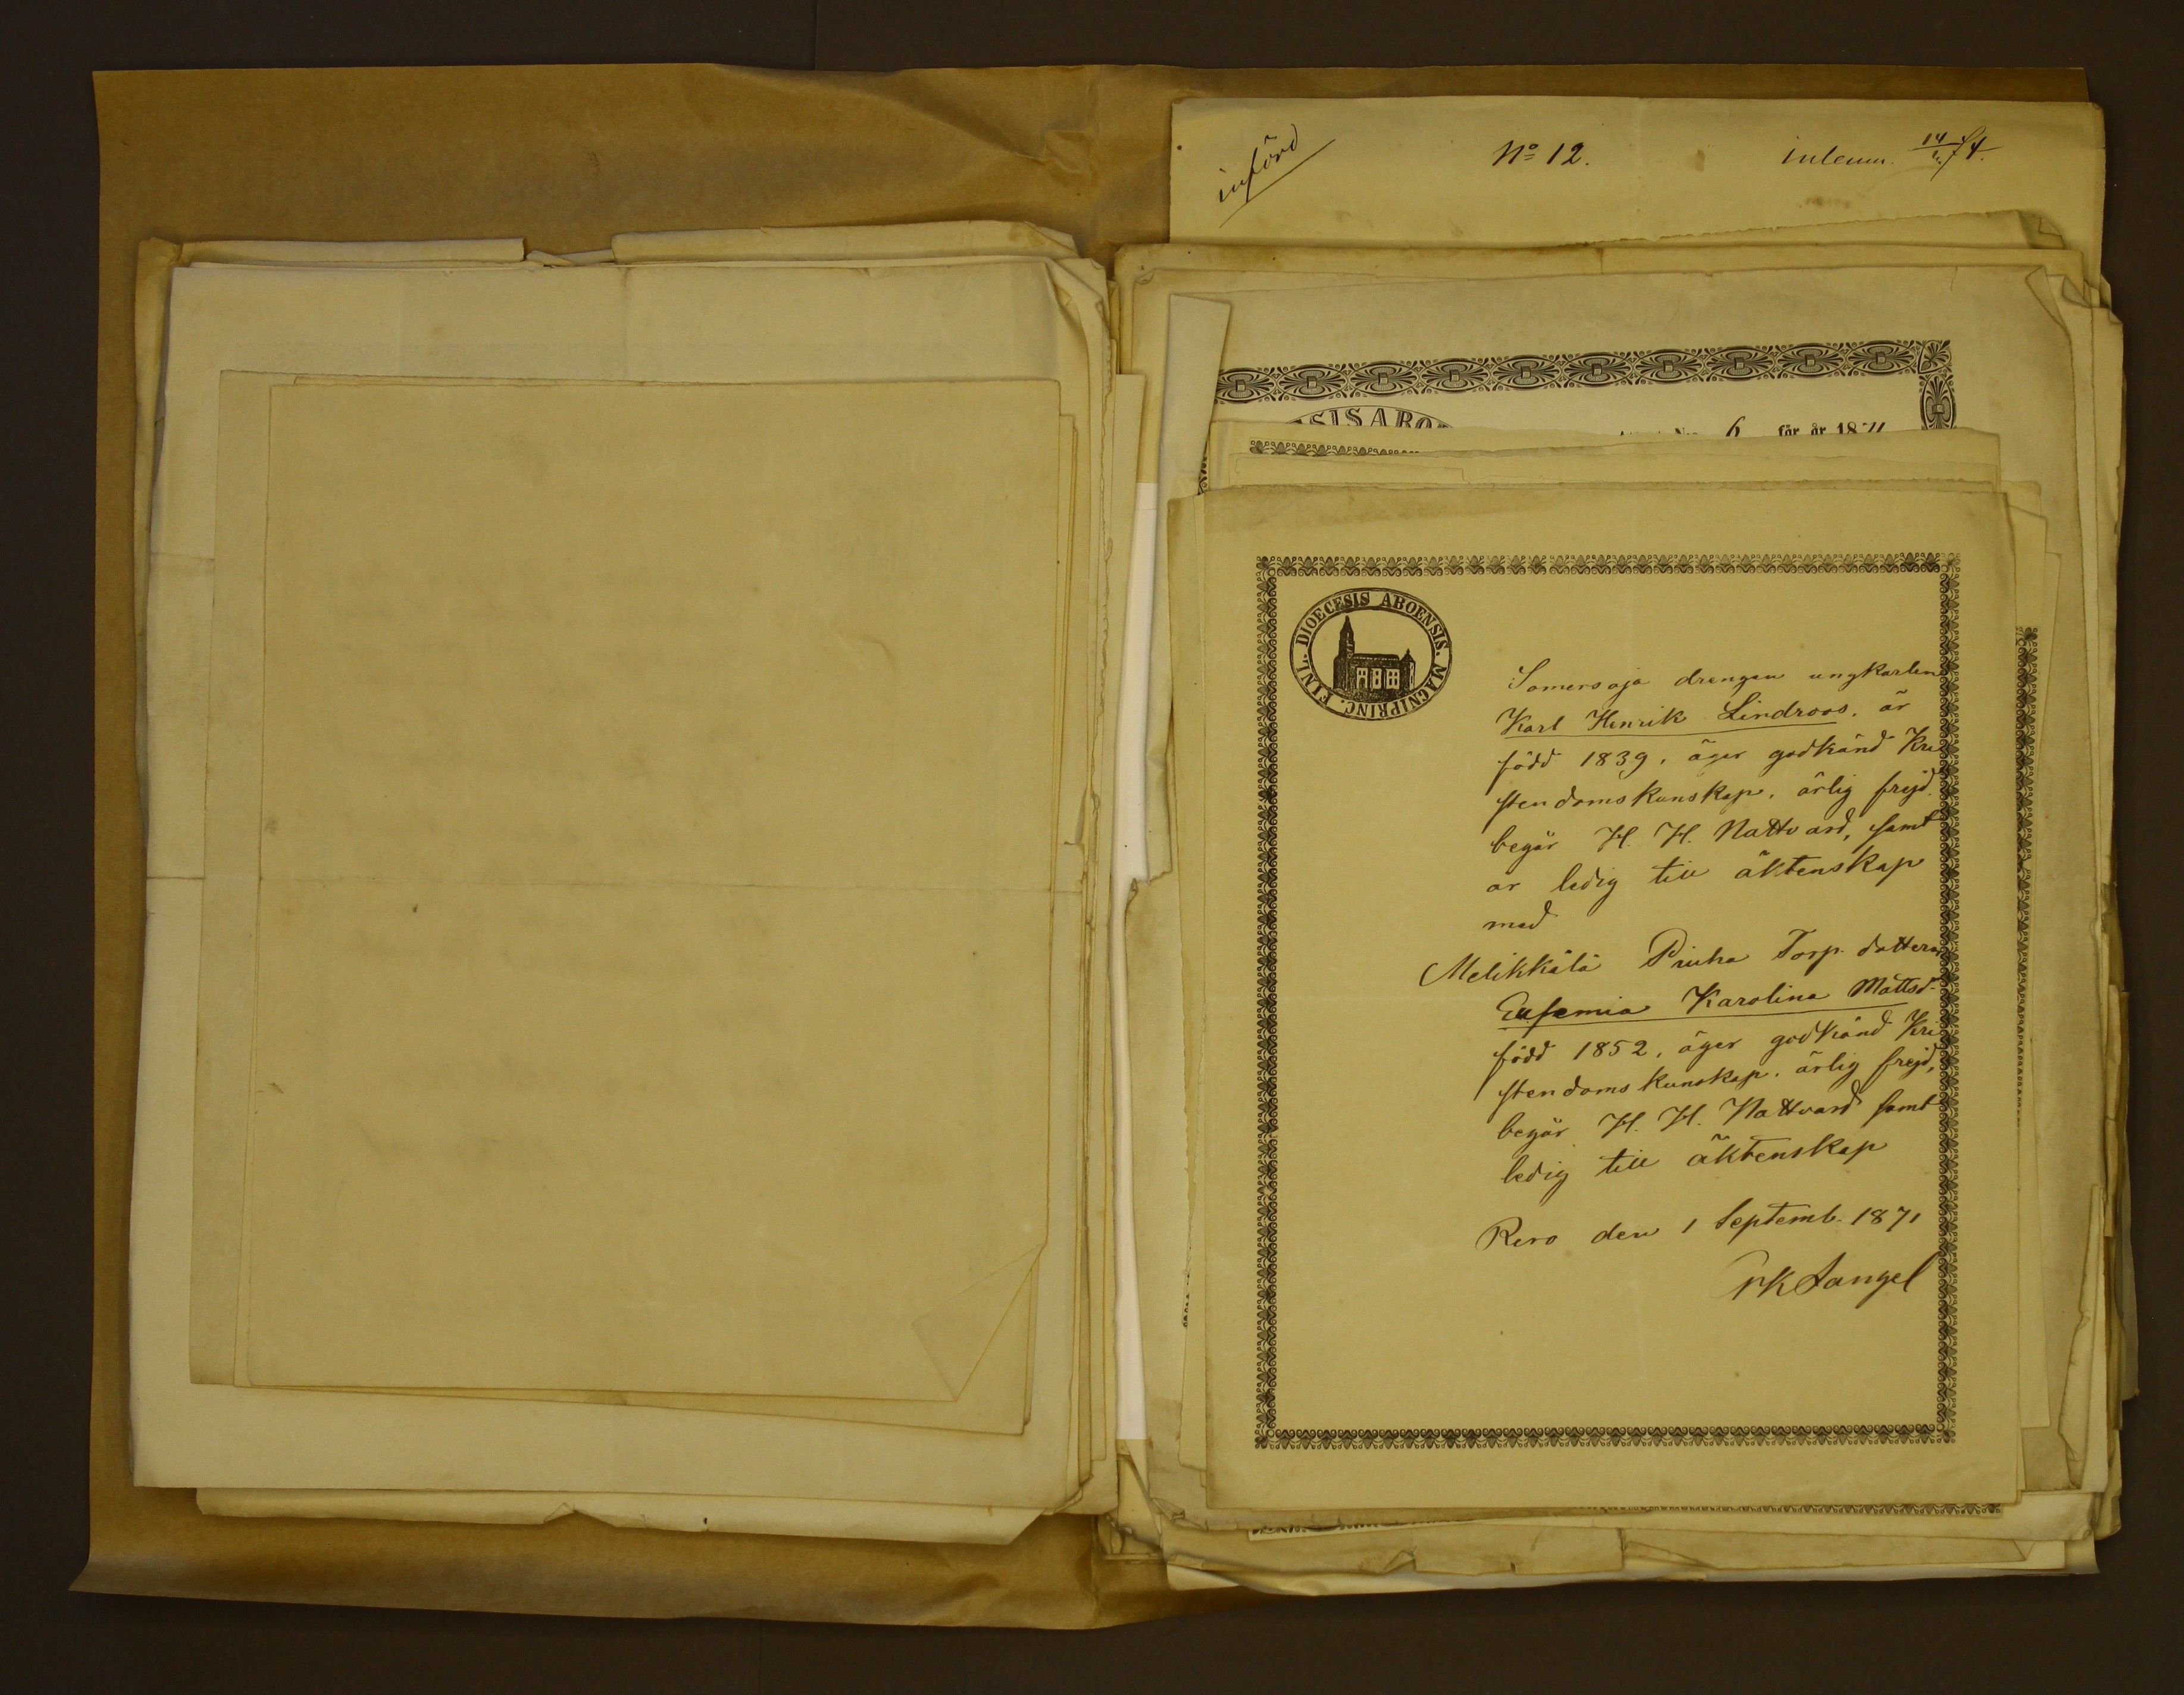 införd
No 12.
inlemn. 14/74.
SIS ABO
6 för år 1871
FINL. DIOECESIS ABOENSIS. MAGNIPRINC.
Somersoja drengen ungkarlen
Karl Henrik Lindroos. är
född 1839, äger godkänd Kri
stendomskunskap, ärlig frejd.
begår H. H. Nattvard, samt
är ledig till äktenskap
med
Melikkälä Priiha Torp. dottern
Eufemia Karolina Mattsd.
född 1852, äger godkänd Kri
stendomskunskap. ärlig frejd,
begår H. H. Nattvard samt
ledig till äktenskap
Rero den 1 Septemb. 1871
Langel